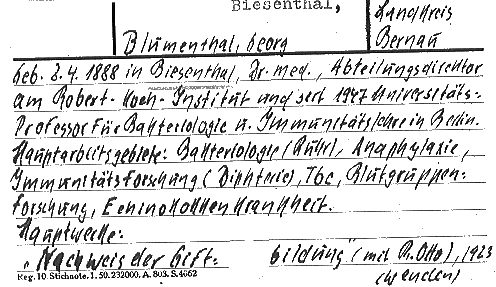 Biesenthal,
Landkreis
Bernau
Blumenthal, Georg
geb. 3.4.1888 in Biesenthal, Dr. med., Abteilungsdirektor
am Robert-Koch-Institut und seit 1947 Universitäts-
Professor für Bakteriologie u. Immunitätslehre in Berlin.
Hauptarbeitsgebiete: Bakteriologie (Ruhr), Anaphylaxie,
Immunitätsforschung (Diphterie), Tbc, Blutgruppen-
forschung, Echinokokkenkrankheit.
Hauptwerke:
"Nachweis der Gift- bildung" (mit R. Otto), 1923
Reg. 10 Stichnote. 1. 50. 232000. A. 803. S. 4662